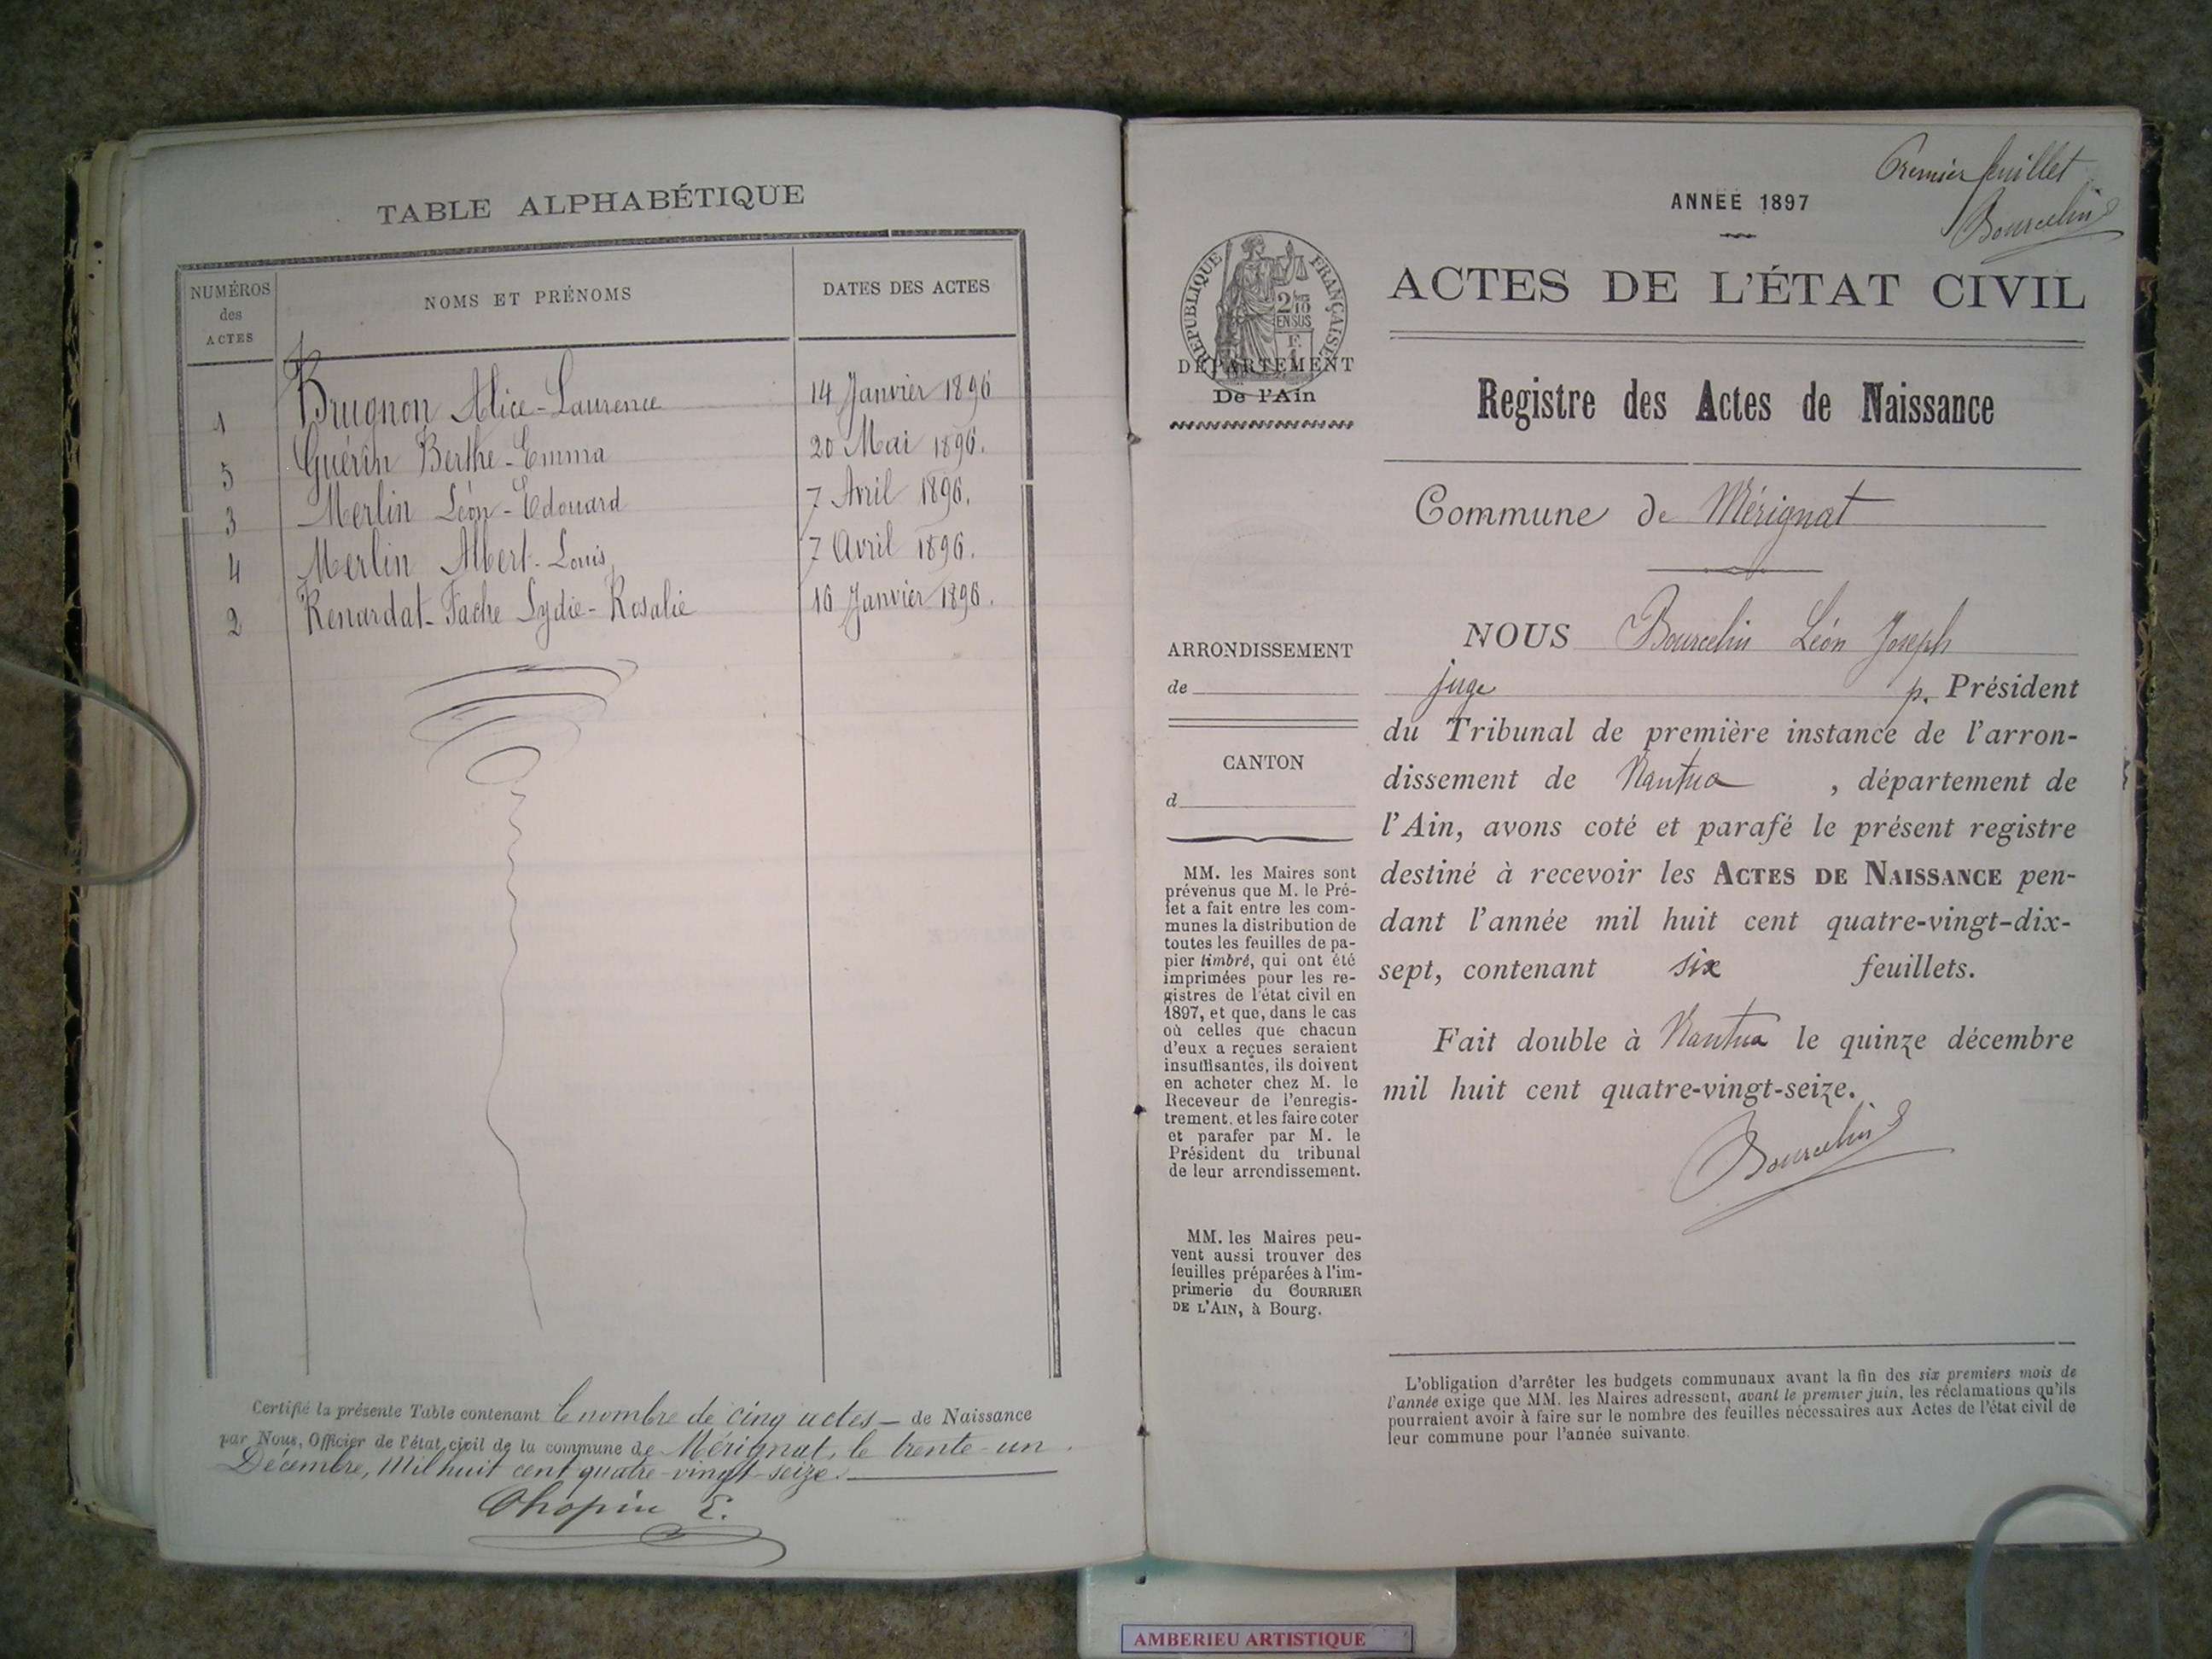 TABLE ALPHABÉTIQUE
NUMÉROS
des
ACTES
NOMS ET PRÉNOMS
DATES DES ACTES
1 Brugnon Alice-Laurence 14 Janvier 1896
5 Guérin Berthe-Emma 20 Mai 1896.
3 Merlin Léon-Edouard 7 Avril 1896.
4 Merlin Albert-Louis 7 Avril 1896.
2 Renardat-Fache Lydie-Rosalie 16 Janvier 1896.
Certifié la présente Table contenant le nombre de cinq actes — de Naissance
par Nous, Officier de l'état civil de la commune de Mérignat, le trente-un
Décembre, Mil huit cent quatre-vingt-seize.
Chopin E.
Premier feuillet
Bourcelin
ANNÉE 1897
RÉPUBLIQUE FRANÇAISE
2/10
EN SUS
F.
DÉPARTEMENT
De l'Ain
ACTES DE L'ÉTAT CIVIL
Registre des Actes de Naissance
Commune de Mérignat
ARRONDISSEMENT
de
CANTON
d
MM. les Maires sont
prévenus que M. le Pré-
fet a fait entre les com-
munes la distribution de
toutes les feuilles de pa-
pier timbré, qui ont été
imprimées pour les re-
gistres de l'état civil en
1897, et que, dans le cas
où celles que chacun
d'eux a reçues seraient
insuffisantes, ils doivent
en acheter chez M. le
Receveur de l'enregis-
trement, et les faire coter
et parafer par M. le
Président du tribunal
de leur arrondissement.
MM. les Maires peu-
vent aussi trouver des
feuilles préparées à l'im-
primerie du COURRIER
DE L'AIN, à Bourg.
NOUS Bourcelin Léon Joseph
juge p. Président
du Tribunal de première instance de l'arron-
dissement de Nantua , département de
l'Ain, avons coté et parafé le présent registre
destiné à recevoir les ACTES DE NAISSANCE pen-
dant l'année mil huit cent quatre-vingt-dix-
sept, contenant six feuillets.
Fait double à Nantua le quinze décembre
mil huit cent quatre-vingt-seize.
Bourcelin
L'obligation d'arrêter les budgets communaux avant la fin des six premiers mois de
l'année exige que MM. les Maires adressent, avant le premier juin, les réclamations qu'ils
pourraient avoir à faire sur le nombre des feuilles nécessaires aux Actes de l'état civil de
leur commune pour l'année suivante.
AMBERIEU ARTISTIQUE